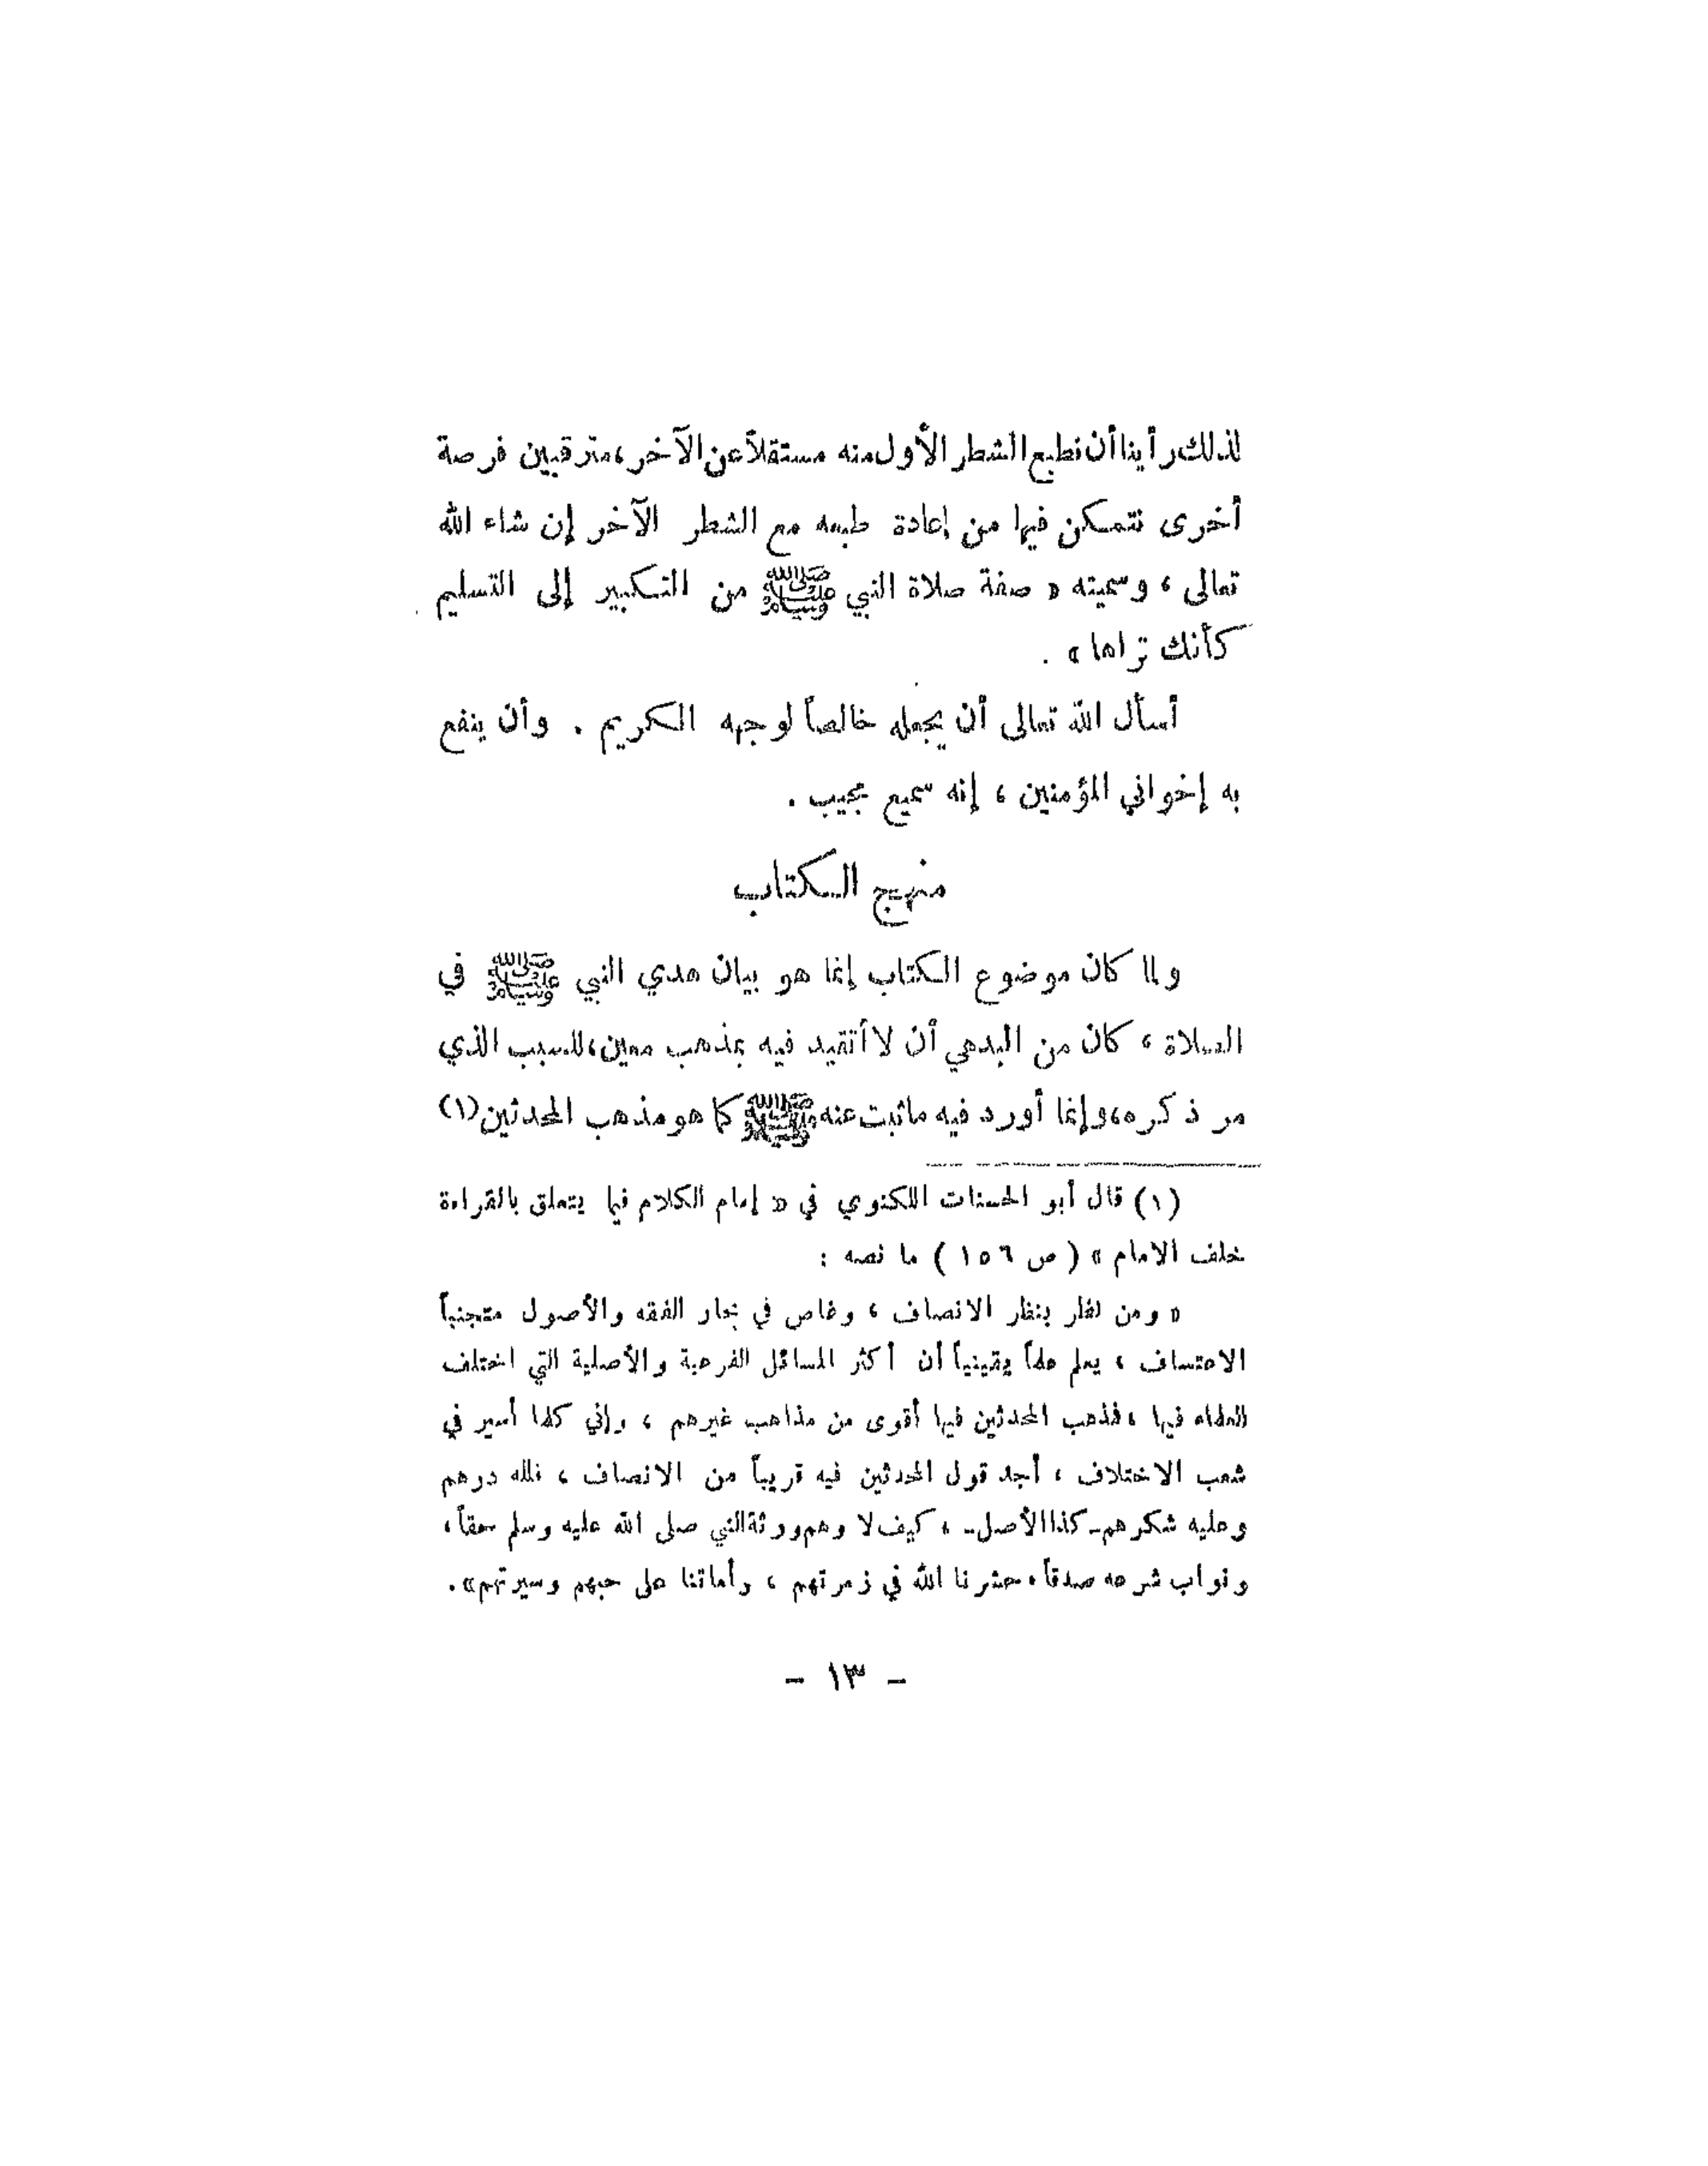 لذلك رأينا أن نطبع الشطر الأول منه مستقلاً عن الآخر، مترقبين فرصة
أخرى نتمكن فيها من إعادة طبعه مع الشطر الآخر إن شاء الله
تعالى ، وسميته « صفة صلاة النبي ﷺ من التكبير إلى التسليم
كأنك تراها » .
أسأل الله تعالى أن يجعله خالصاً لوجهه الكريم . وأن ينفع
به إخواني المؤمنين ، إنه سميع مجيب .
منهج الكتاب
ولما كان موضوع الكتاب إنما هو بيان هدي النبي ﷺ في
الصلاة ، كان من البدهي أن لا أتقيد فيه بمذهب معين، للسبب الذي
مر ذكره، وإنما أورد فيه ما ثبت عنه ﷺ كما هو مذهب المحدثين (١)
(١) قال أبو الحسنات اللكنوي في « إمام الكلام فيما يتعلق بالقراءة
خلف الامام » ( ص ١٥٦ ) ما نصه :
« ومن نظر بنظر الانصاف ، وغاص في بحار الفقه والأصول متجنباً
الاعتساف ، يعلم علماً يقينياً أن أكثر المسائل الفرعية والأصلية التي اختلف
العلماء فيها ، فمذهب المحدثين فيها أقوى من مذاهب غيرهم ، وإني كلما أسير في
شعب الاختلاف ، أجد قول المحدثين فيه قريباً من الانصاف ، فلله درهم
وعليه شكرهم ـ كذا الأصل ـ ، كيف لا وهم ورثة النبي صلى الله عليه وسلم حقاً ،
ونواب شرعه صدقاً ، حشرنا الله في زمرتهم ، وأماتنا على حبهم وسيرتهم » .
- ١٣ -